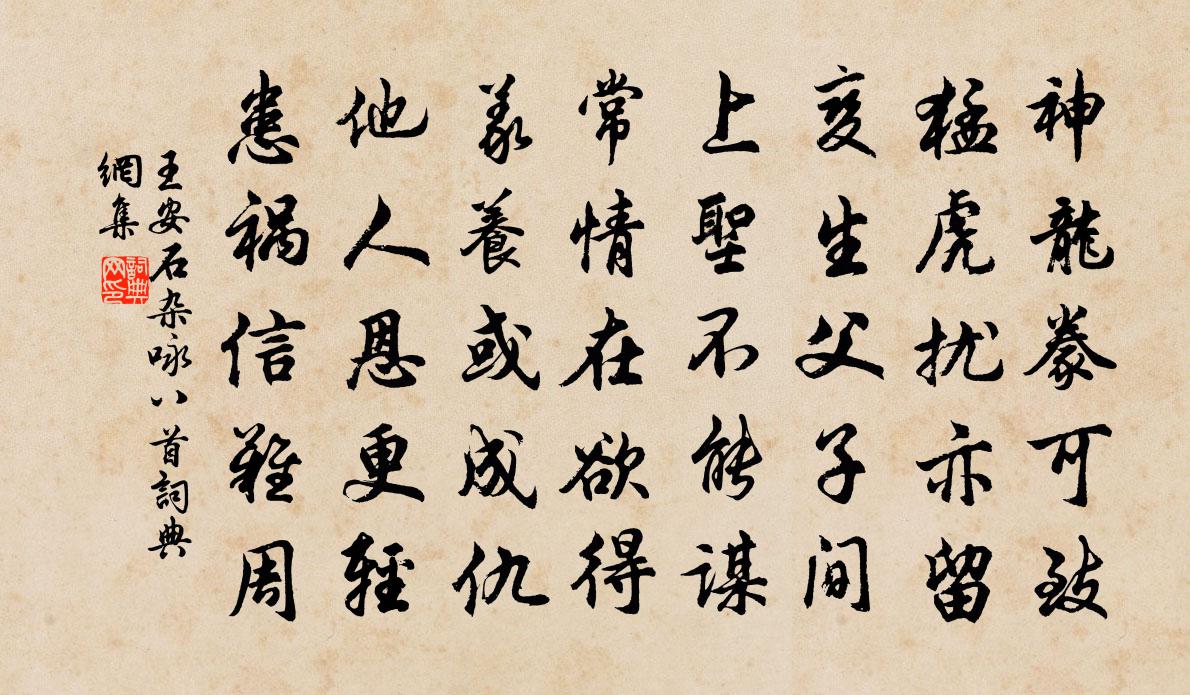 神龍豢可致
猛虎扰亦留
变生父子间
上聖不能謀
常情在欲得
義養或成仇
他人恩更輕
患祸信難周
王安石杂咏八首詞典
網集
詞典
网印